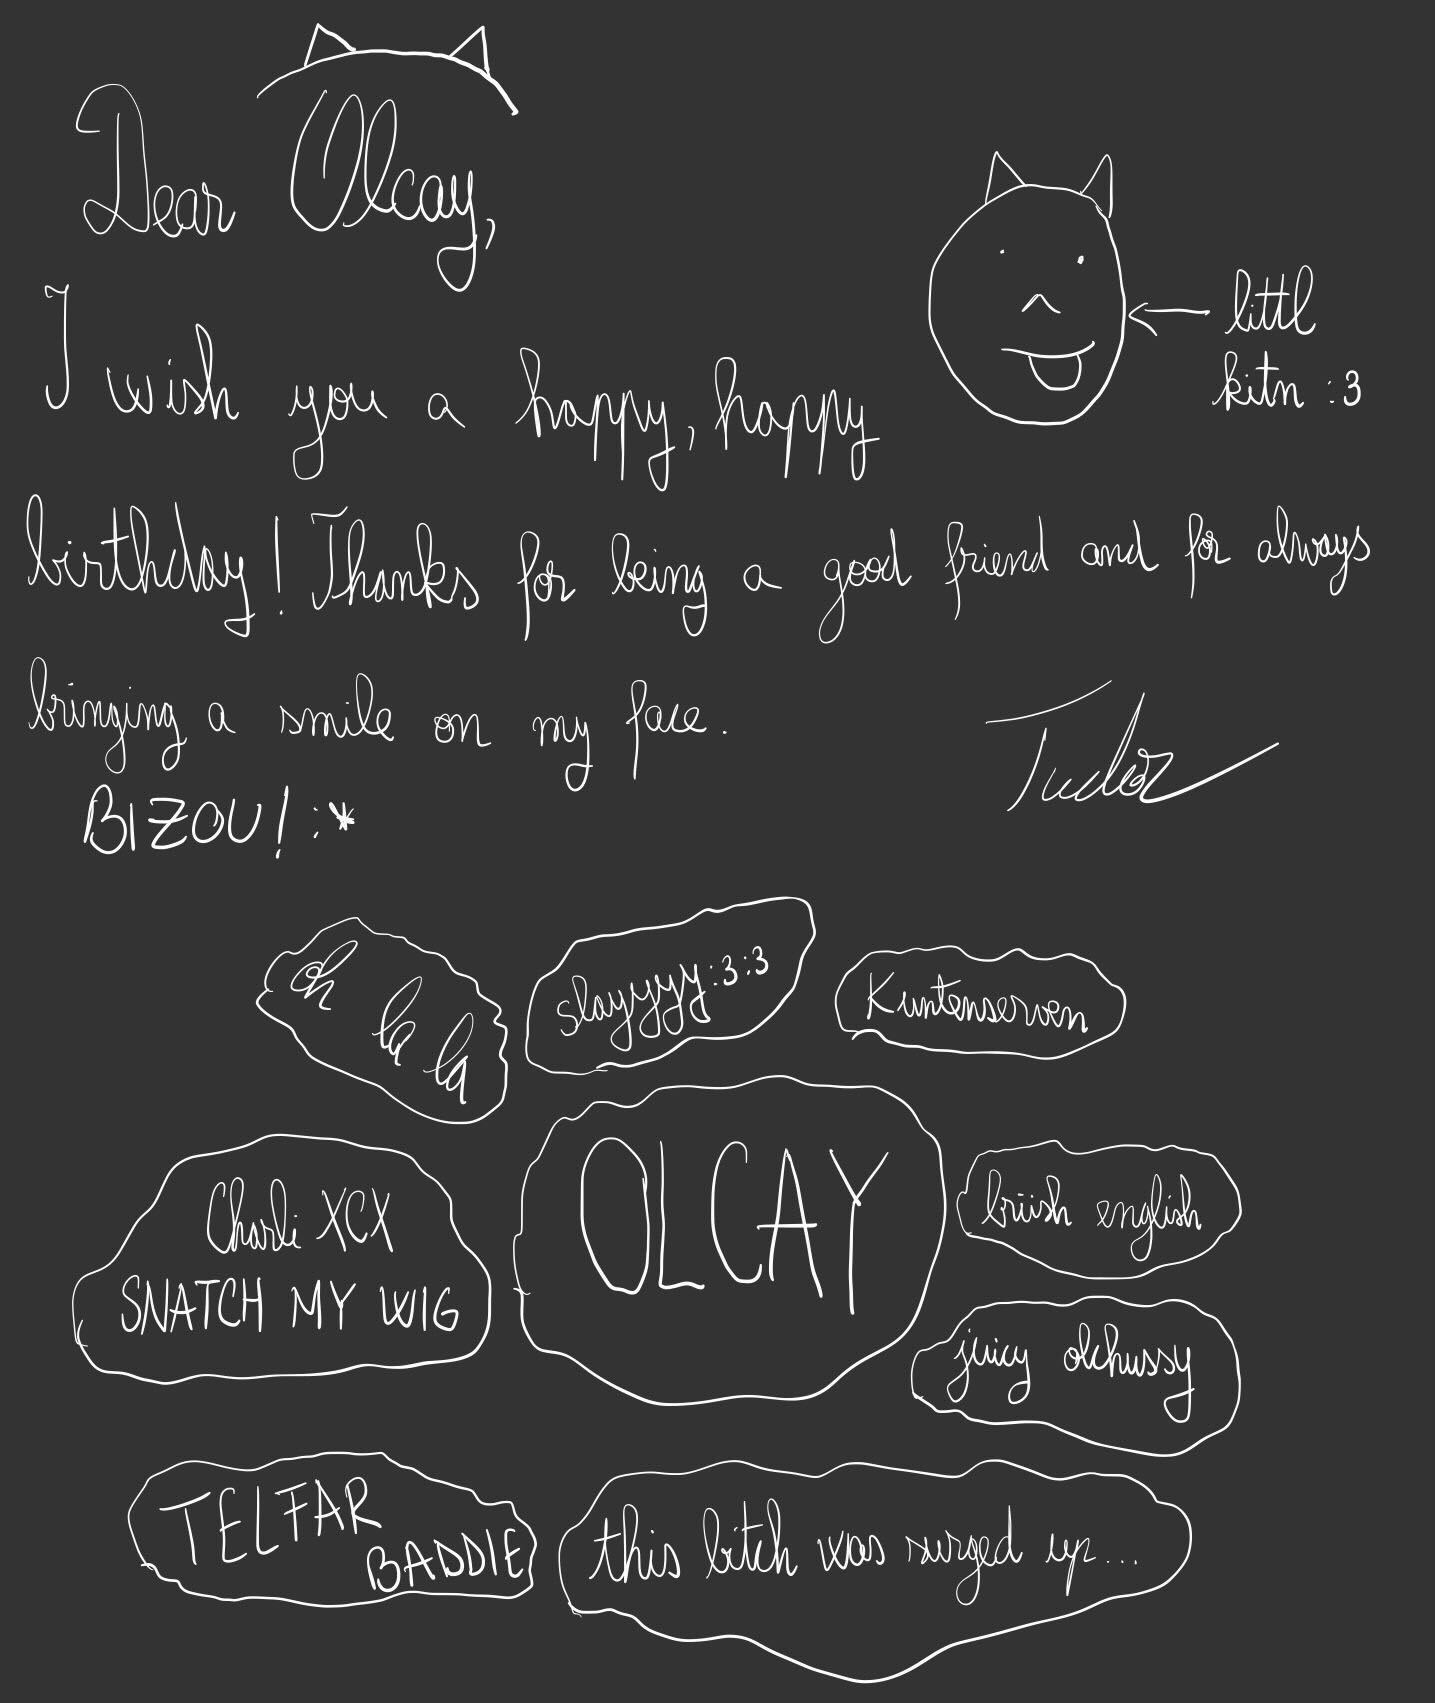 Dear Olcay,
I wish you a happy, happy
birthday! Thanks for being a good friend and for always
bringing a smile on my face.
BIZOU! :*
Tudor
littl
kitn :3
oh la la
slayyyy :3 :3
Kuntenserven
Charli XCX
SNATCH MY WIG
OLCAY
briish english
juicy olchussy
TELFAR
BADDIE
this bitch was surged up...